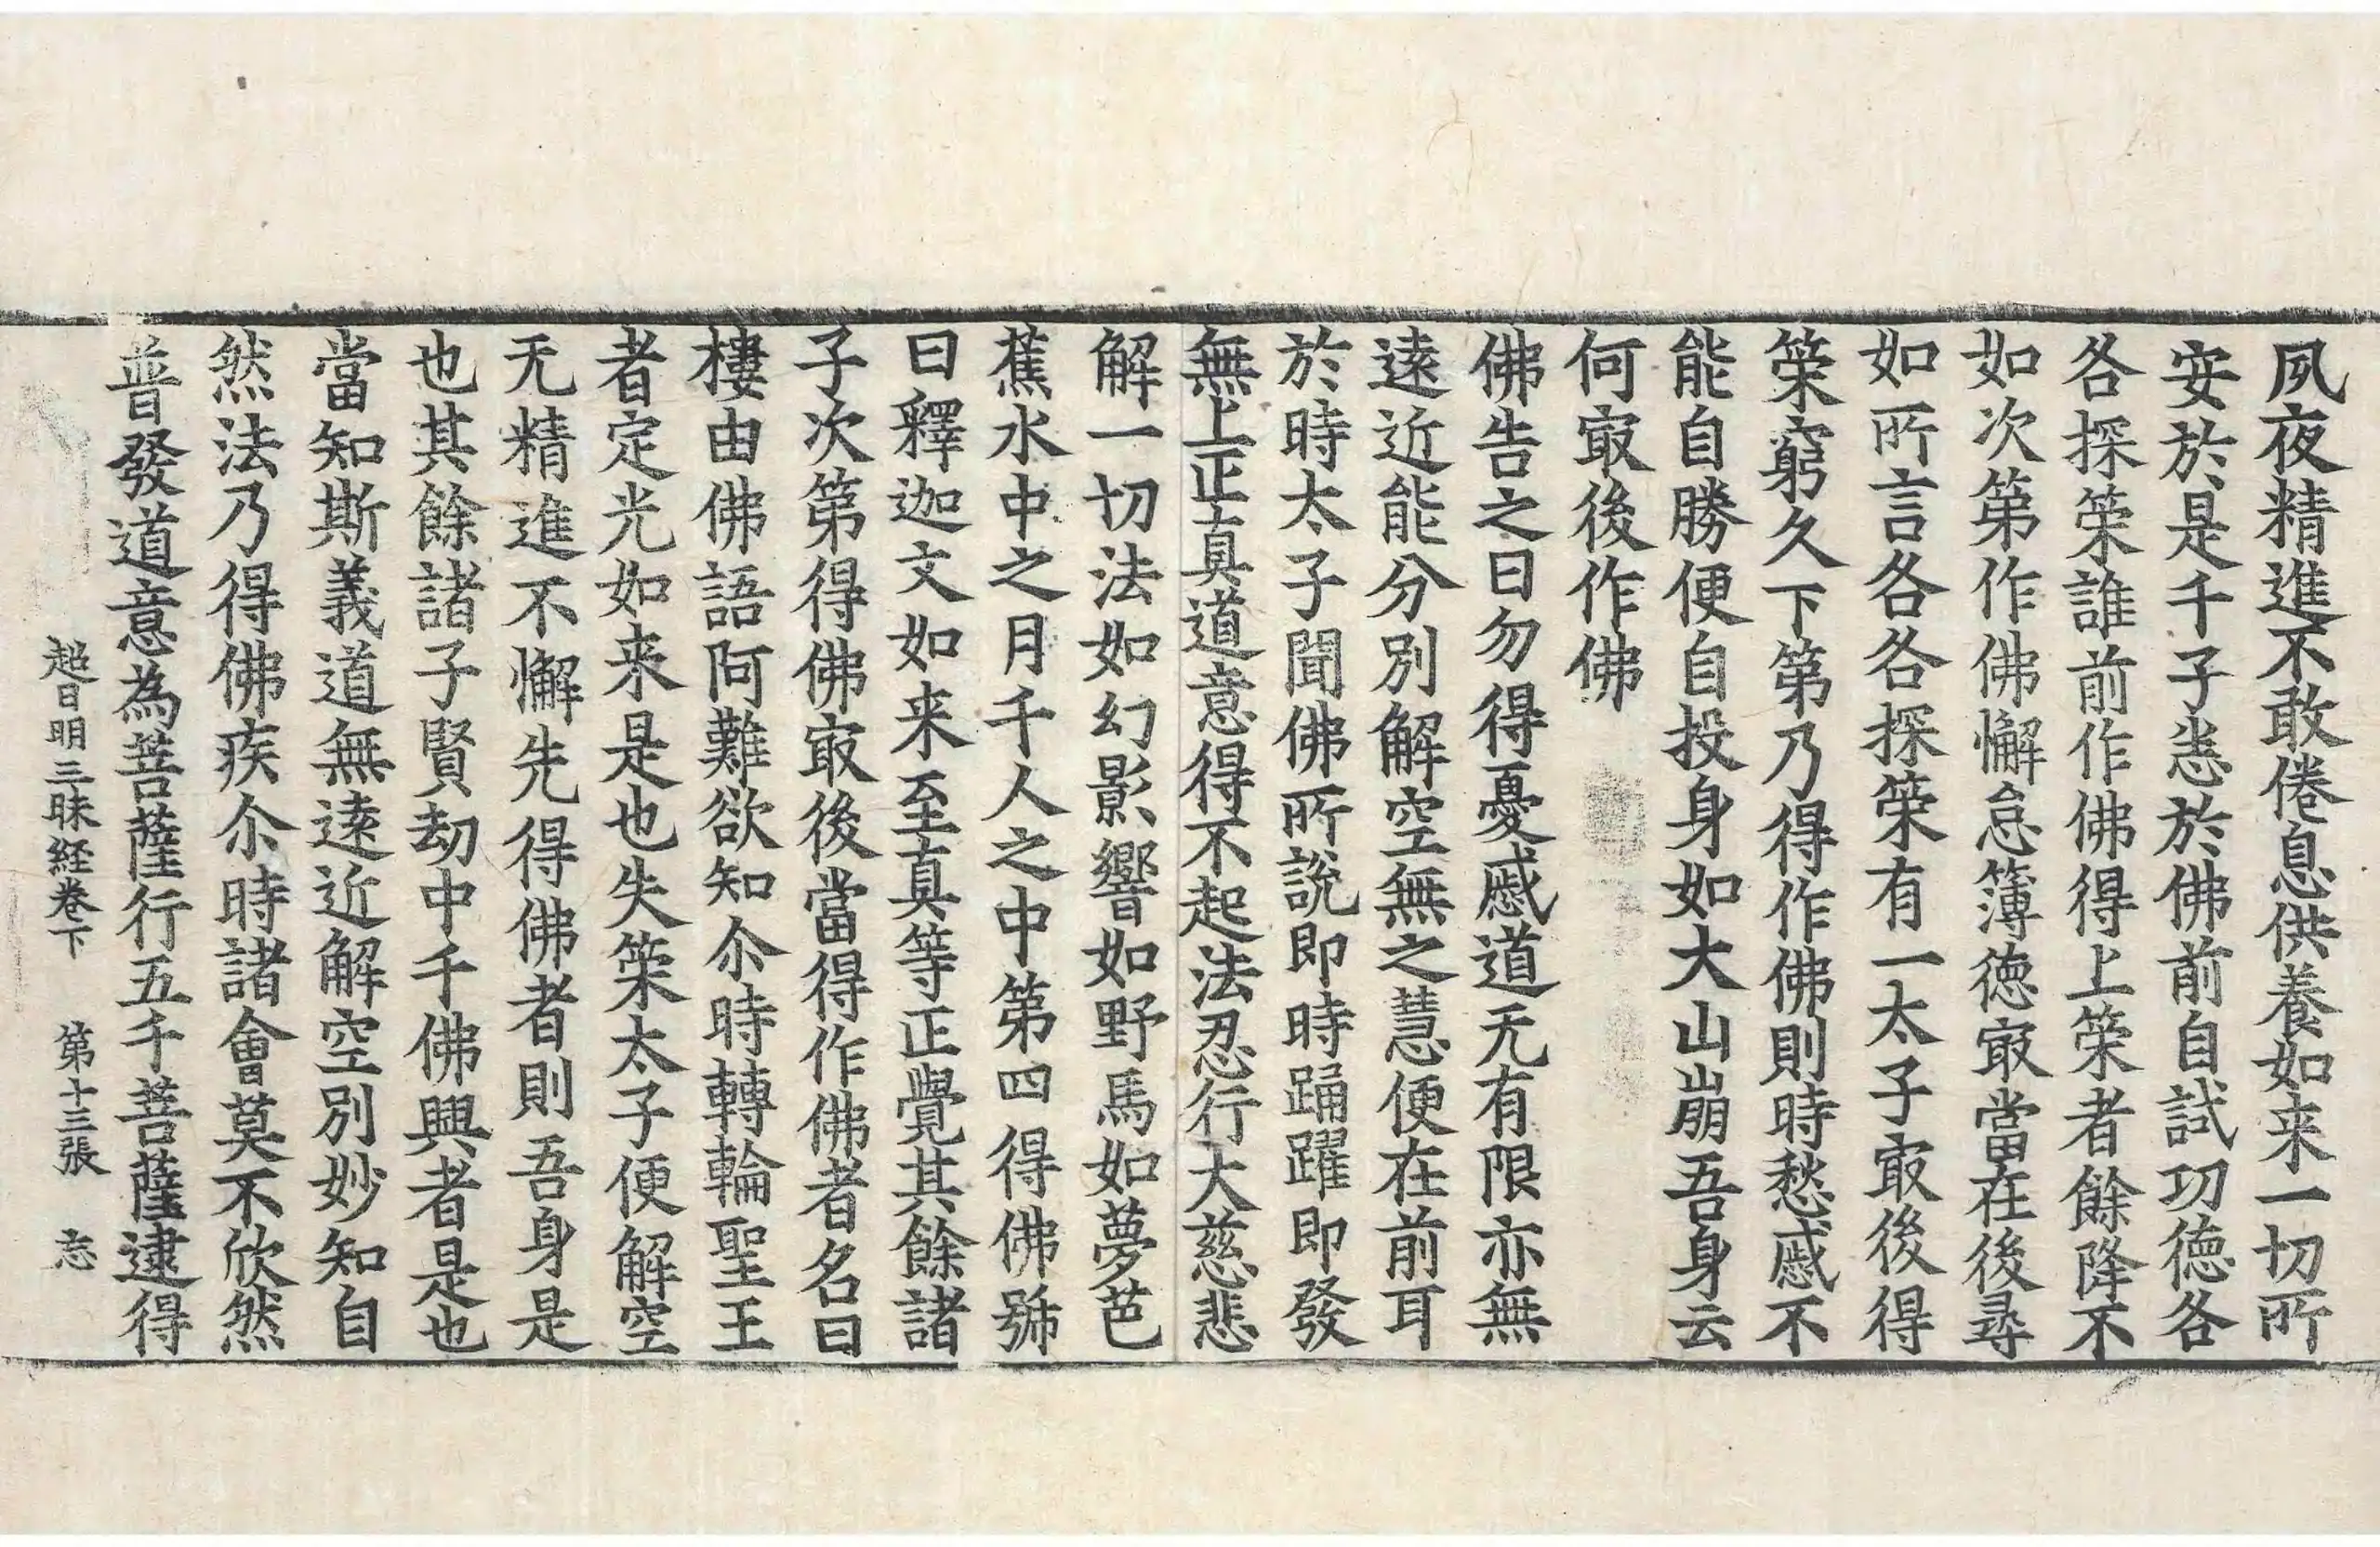 夙夜精進不敢倦息供養如来一切所
安於是千子恚於佛前自試功徳各
各探筞誰前作佛得上筞者餘降不
如次第作佛懈怠簿徳㝡當在後尋
如所言各各探筞有一太子㝡後得
筞窮久下第乃得作佛則時愁慼不
能自勝便自投身如大山崩吾身云
何㝡後作佛
佛告之曰勿得憂慼道无有限亦無
逺近能分別解空無之慧便在前耳
於時太子聞佛所說即時踊躍即發
無上正真道意得不起法忍行大慈悲
解一切法如幻影響如野馬如夢芭
蕉水中之月千人之中第四得佛号
曰釋迦文如来至真等正覺其餘諸
子次第得佛㝡後當得作佛者名曰
樓由佛語阿難欲知尒時轉輪聖王
者定光如来是也失筞太子便解空
无精進不懈先得佛者則吾身是
也其餘諸子賢劫中千佛興者是也
當知斯義道無逺近解空別妙知自
然法乃得佛疾尒時諸會莫不欣然
普發道意為菩薩行五千菩薩逮得
超日明三昧経卷下 第十三張 忘